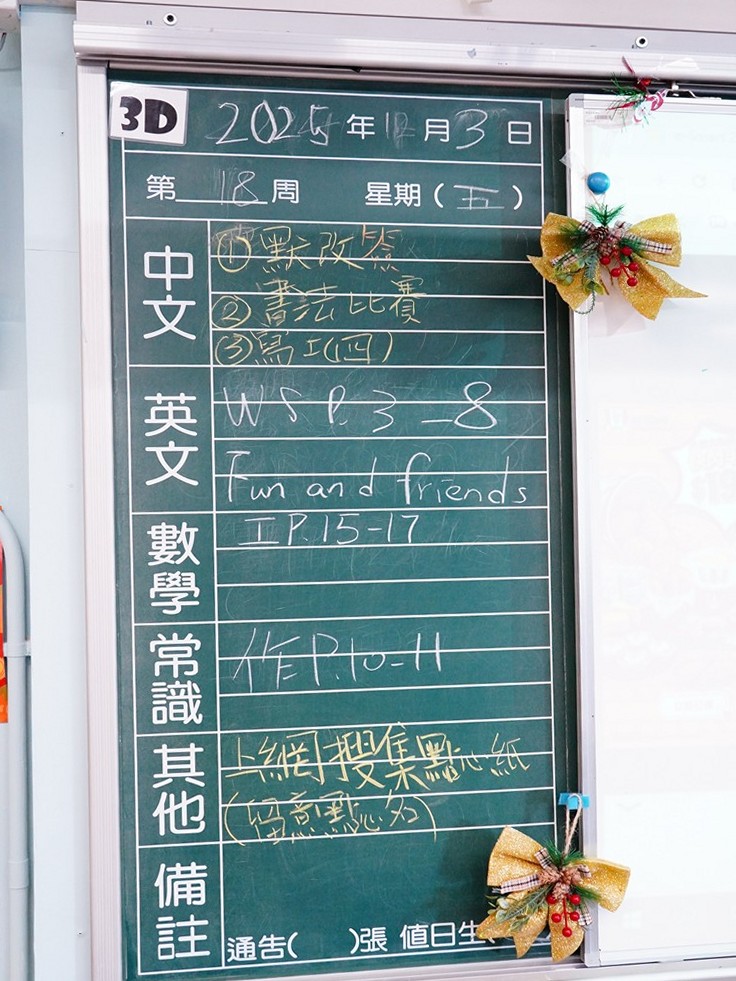 3D 2025年12月3日
第18周 星期(五)
中文
①默改簽
②書法比賽
③寫工(四)
英文
WS P.3-8
Fun and friends
數學
工P.15-17
常識
作P.10-11
其他
上網搜集點心紙
(留意點心名)
備註
通告( )張 值日生